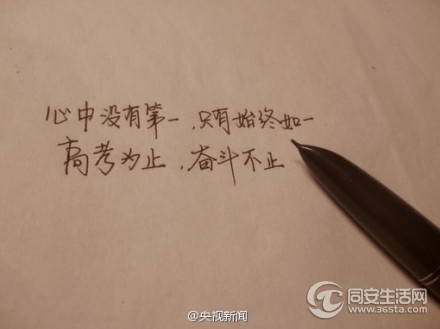 心中没有第一，只有始终如一
高考为止，奋斗不止
@央视新闻
同安生活网
www.365ta.com